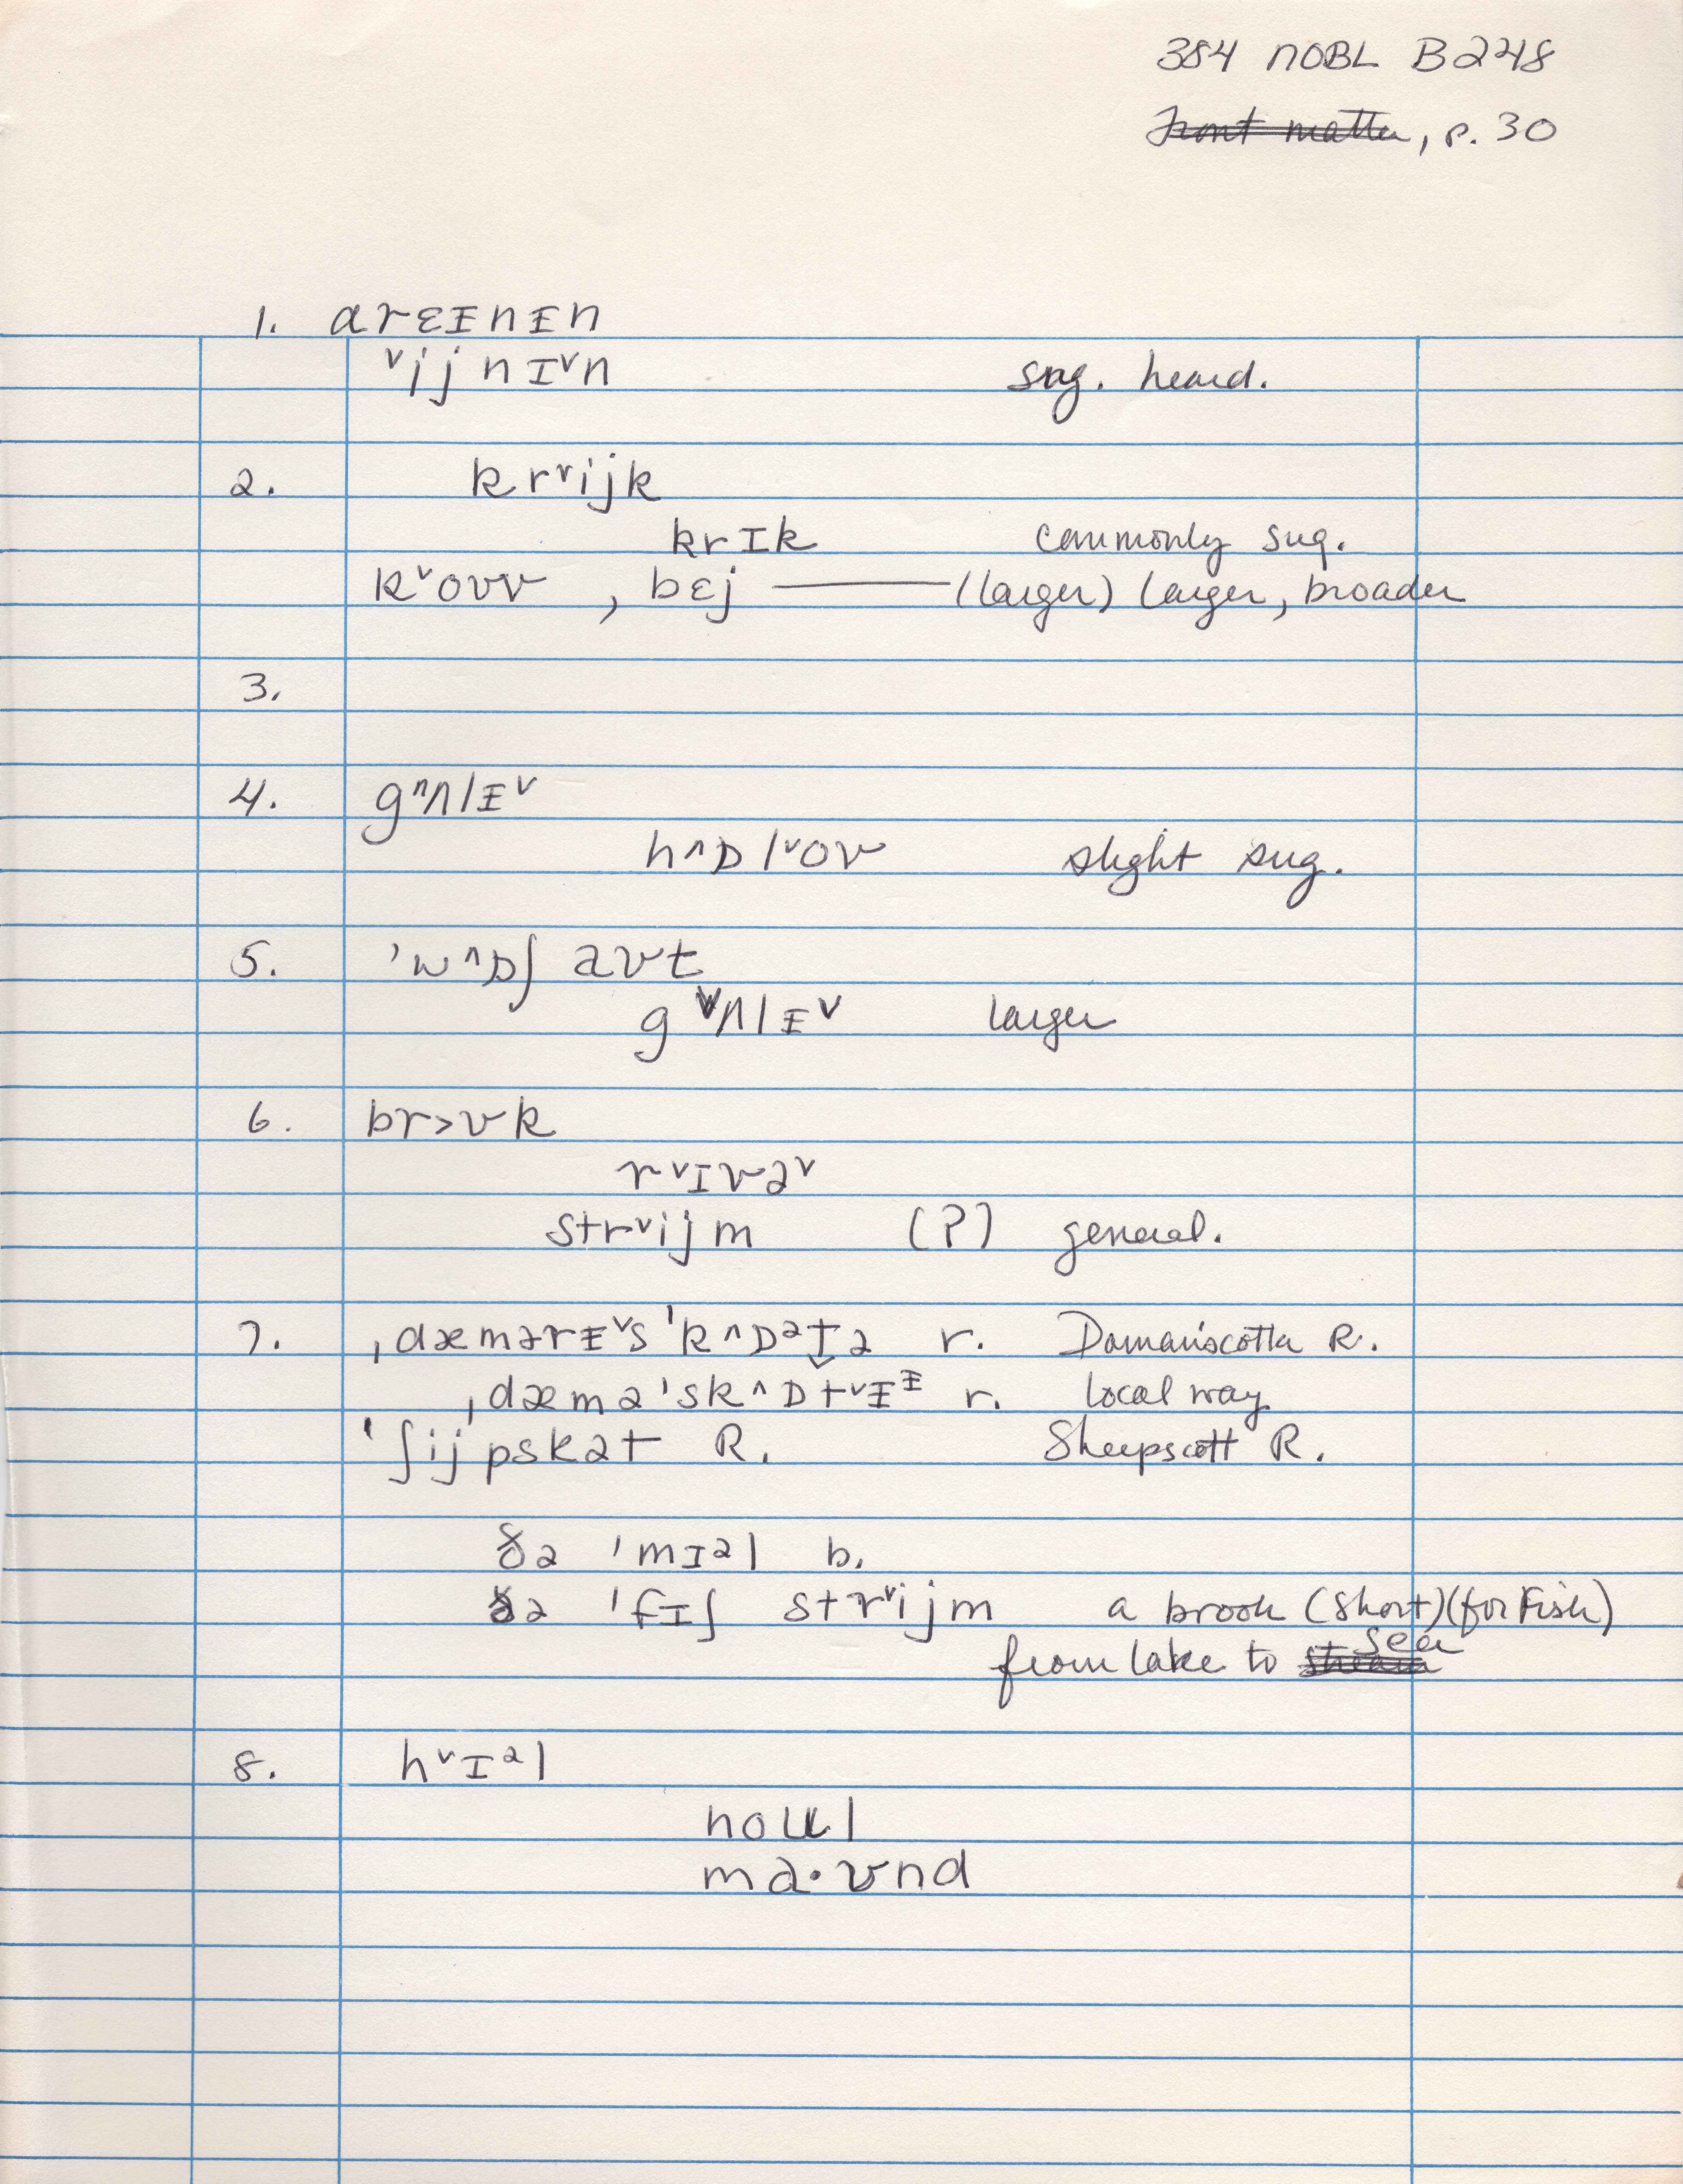 384 NOBL B248
~~Front matter~~, p. 30
1. arɛᵻnᵻn
ᵛijnɪᵛn sug. heard.
2. krᵛijk
krɪk commonly sug.
kᵛovv , bɛj ——— (larger) larger, broader
3.
4. gᶺʌlᵻᵛ
hᶺɒlᵛoʊ slight sug.
5. 'wᶺɒʃ aʊt
gᵛʌlᵻᵛ larger
6. br>ʊk
rᵛɪvəᵛ
strᵛijm (?) general.
7. ˌdæmərᵻᵛs'kᶺɒᵊt̬ə r. Damariscotta R.
ˌdæmə'skᶺɒtᵛᵻᶧ r. local way
'ʃij'pskət R. Sheepscott R.
ðə 'mɪəl b.
ðə 'fɪʃ strᵛijm a brook (short) (for fish)
from lake to ~~stream~~ sea
8. hᵛɪᵊl
noʊl
ma·ʊnd